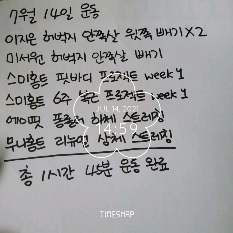 7월 14일 운동
이지은 허벅지 안쪽살 왕창 빼기 X2
미서원 허벅지 안쪽살 빼기
스미홈트 핏바디 프로젝트 week 1
스미홈트 6주 복근 프로젝트 week 1
에이핏 폼롤러 하체 스트레칭
JUL 14, 2021
14:59
무니홈트 리뉴얼 상체 스트레칭
총 1시간 45분 운동 완료
TIMESNAP